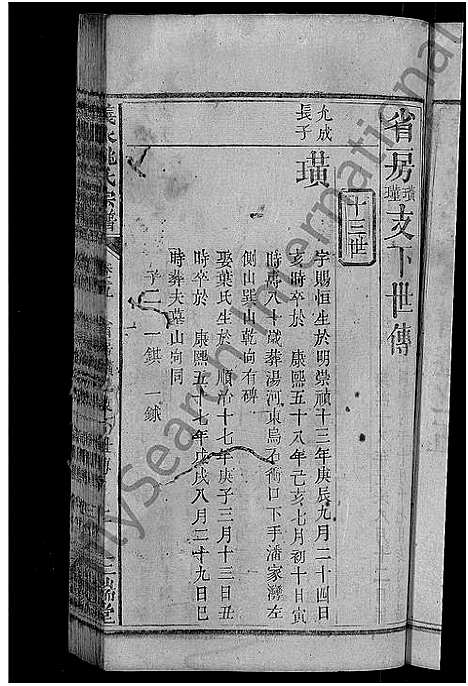 省房璜璡支下世傳
十三世
允成長子
璜
字賜恒生於明崇禎十三年庚辰九月二十四日
亥時卒於 康熙五十八年己亥七月初十日寅
時壽八十歲葬湯河東烏石衕口下手潘家灣左
側山巽山乾向有碑
娶葉氏生於 順治十七年庚子三月十三日丑
時卒於 康熙五十七年戊戌八月二十九日巳
時葬夫墓山向同
子二 一錤 一銶
義水姚氏宗譜
MySearch International